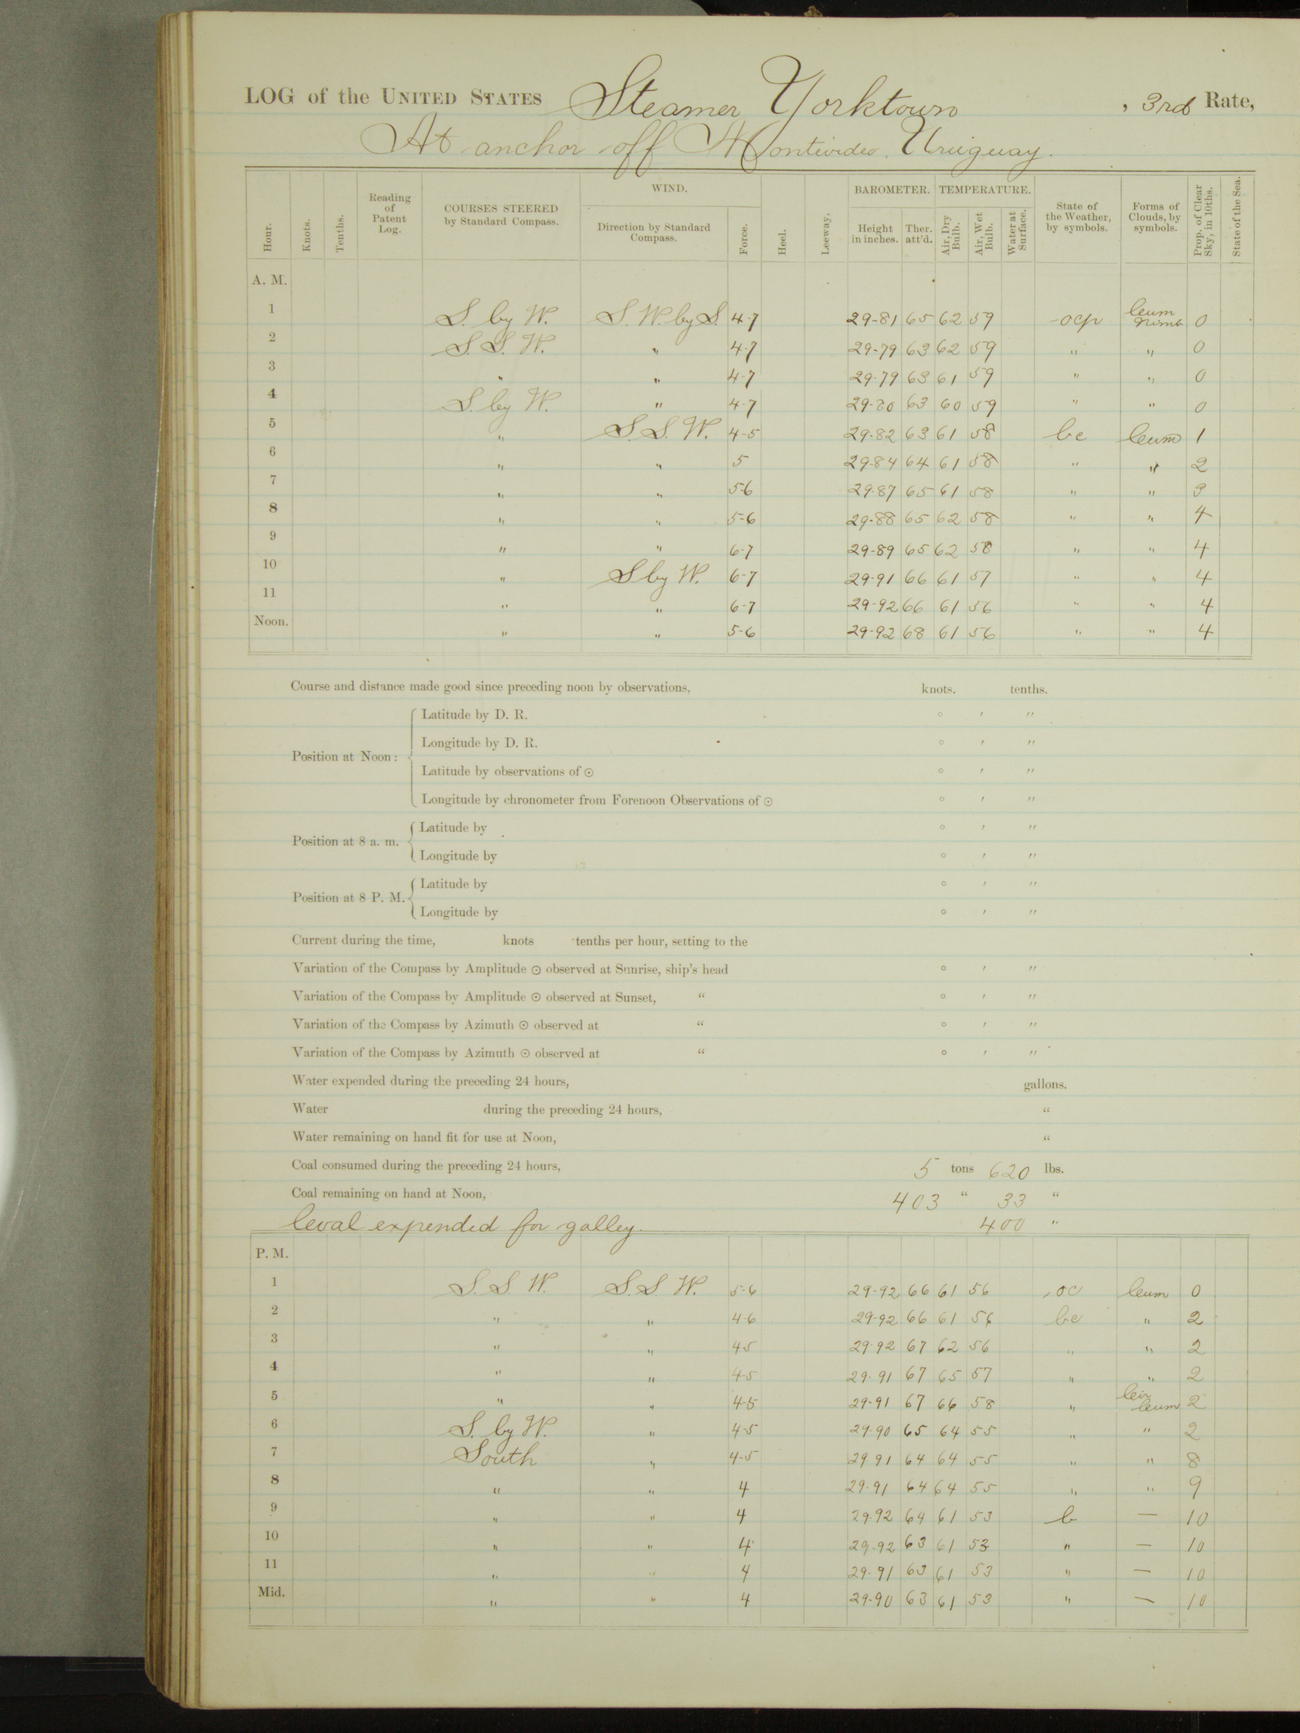 LOG of the UNITED STATES Steamer Yorktown, 3rd Rate,
At anchor off Montevideo, Uruguay.
Hour. Knots. Tenths. Reading of Patent Log. COURSES STEERED by Standard Compass. WIND. Direction by Standard Compass. Force. Heel. Leeway. BAROMETER. Height in inches. Ther. att'd. TEMPERATURE. Air, Dry Bulb. Air, Wet Bulb. Water at Surface. State of the Weather, by symbols. Forms of Clouds, by symbols. Prop. of Clear Sky, in 10ths. State of the Sea.
A. M.
1 S. by W. S. W. by S. 4-7 29-81 65 62 59 ocp Cum Nimb 0
2 S. S. W. " 4-7 29-79 63 62 59 " " 0
3 " " 4-7 29-79 63 61 59 " " 0
4 S. by W. " 4-7 29-80 63 60 59 " " 0
5 " S. S. W. 4-5 29-82 63 61 58 bc Cum 1
6 " " 5 29-84 64 61 58 " " 2
7 " " 5-6 29-87 65 61 58 " " 3
8 " " 5-6 29-88 65 62 58 " " 4
9 " " 6-7 29-89 65 62 58 " " 4
10 " S by W. 6-7 29-91 66 61 57 " " 4
11 " " 6-7 29-92 66 61 56 " " 4
Noon. " " 5-6 29-92 68 61 56 " " 4
Course and distance made good since preceding noon by observations, knots. tenths.
Position at Noon: Latitude by D. R. ° ′ ″
Longitude by D. R. ° ′ ″
Latitude by observations of ⊙ ° ′ ″
Longitude by chronometer from Forenoon Observations of ⊙ ° ′ ″
Position at 8 a. m. Latitude by ° ′ ″
Longitude by ° ′ ″
Position at 8 P. M. Latitude by ° ′ ″
Longitude by ° ′ ″
Current during the time, knots tenths per hour, setting to the
Variation of the Compass by Amplitude ⊙ observed at Sunrise, ship's head ° ′ ″
Variation of the Compass by Amplitude ⊙ observed at Sunset, " ° ′ ″
Variation of the Compass by Azimuth ⊙ observed at " ° ′ ″
Variation of the Compass by Azimuth ⊙ observed at " ° ′ ″
Water expended during the preceding 24 hours, gallons.
Water during the preceding 24 hours, "
Water remaining on hand fit for use at Noon, "
Coal consumed during the preceding 24 hours, 5 tons 620 lbs.
Coal remaining on hand at Noon, 403 " 33 "
Coal expended for galley. 400 "
P. M.
1 S. S. W. S. S. W. 5-6 29-92 66 61 56 oc Cum 0
2 " " 4-6 29-92 66 61 56 bc " 2
3 " " 4-5 29-92 67 62 56 " " 2
4 " " 4-5 29-91 67 65 57 " " 2
5 " " 4-5 29-91 67 66 58 " Cir Cum 2
6 S. by W. " 4-5 29-90 65 64 55 " " 2
7 South " 4-5 29 91 64 64 55 " " 8
8 " " 4 29-91 64 64 55 " " 9
9 " " 4 29-92 64 61 53 b — 10
10 " " 4 29-92 63 61 53 " — 10
11 " " 4 29-91 63 61 53 " — 10
Mid. " " 4 29-90 63 61 53 " — 10